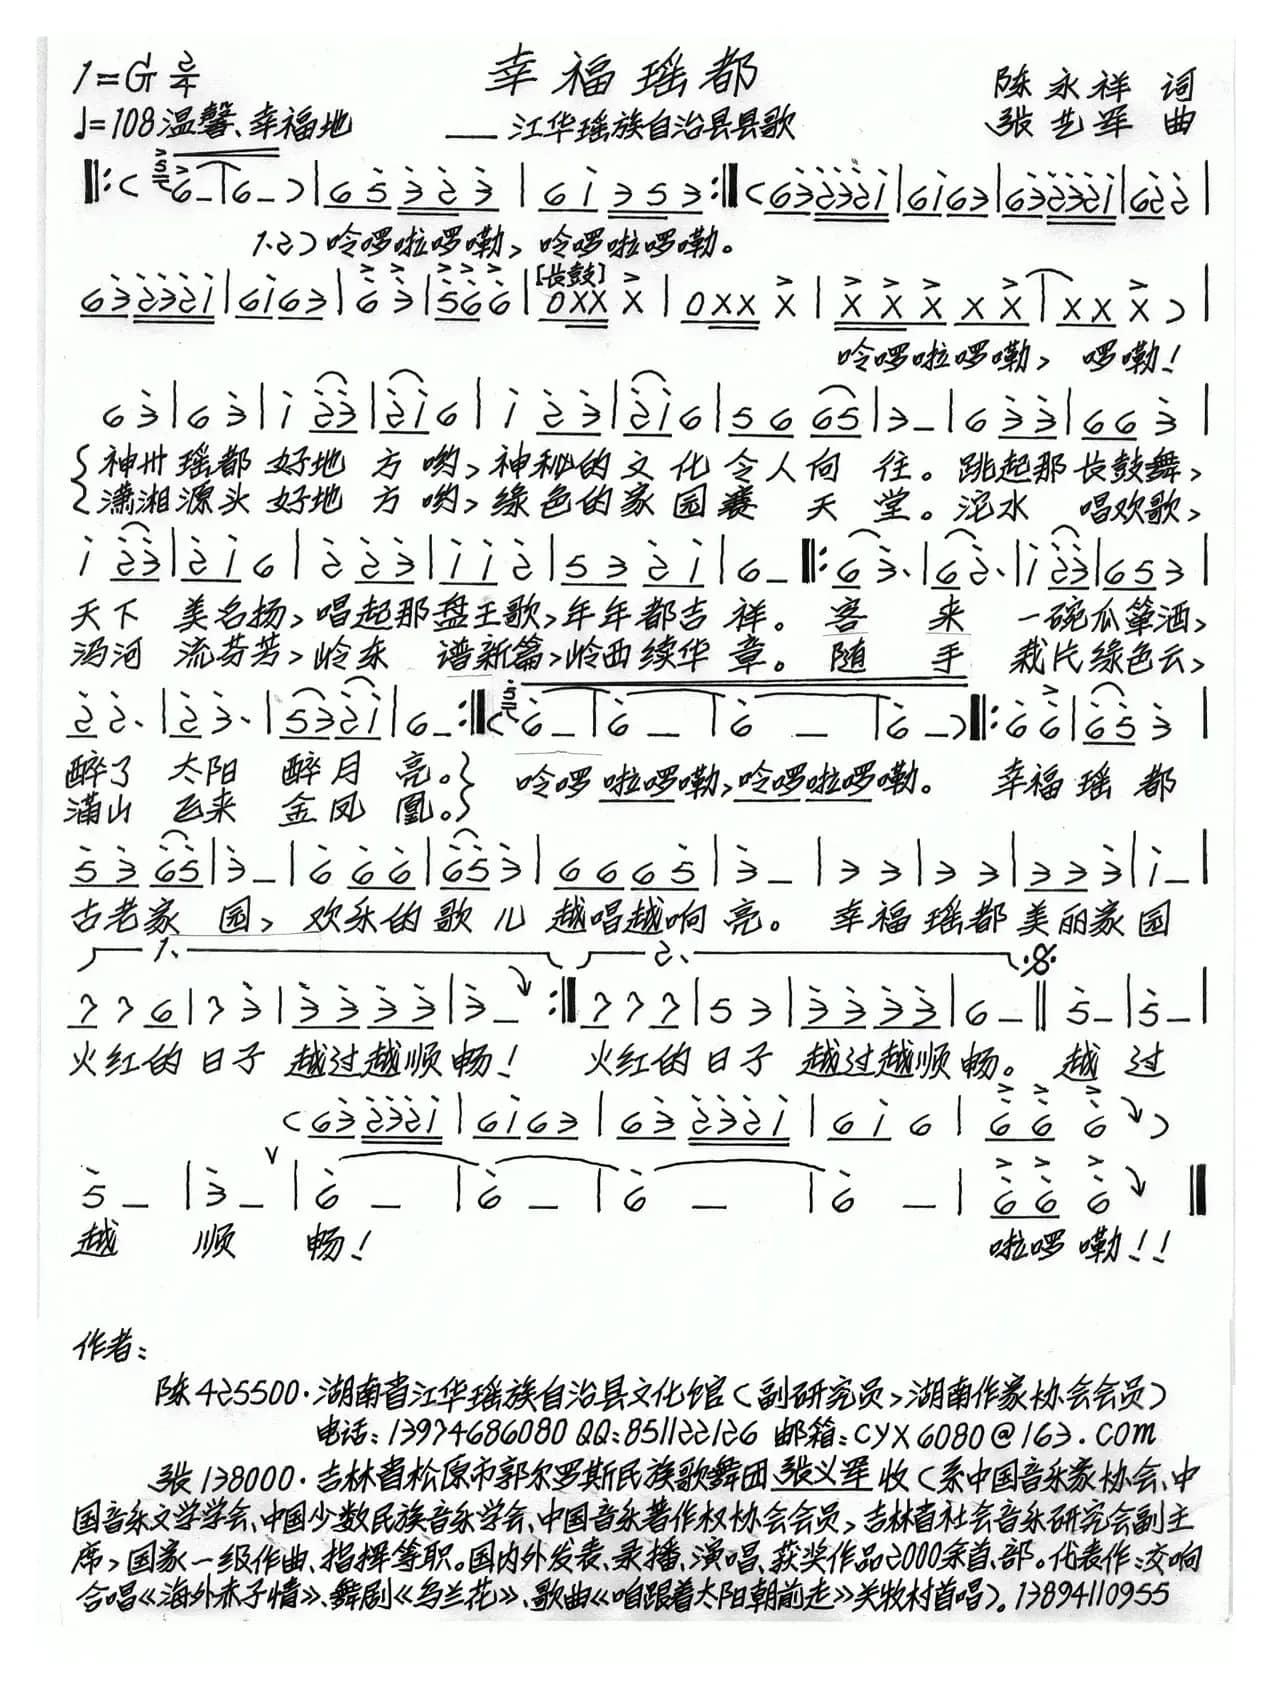 1=G 2/4
幸福瑶都
陈永祥 词
♩=108 温馨、幸福地
——江华瑶族自治县县歌
张艺军 曲
1.2) 呤啰啦啰嘞，呤啰啦啰嘞。
[长鼓]
呤啰啦啰嘞，啰嘞！
神州瑶都好地方哟，神秘的文化令人向往。跳起那长鼓舞，
潇湘源头好地方哟，绿色的家园赛天堂。沱水唱欢歌，
天下美名扬，唱起那盘王歌，年年都吉祥。客来一碗瓜箪酒，
冯河流芬芳，岭东谱新篇，岭西续华章。随手裁片绿色云，
醉了太阳醉月亮。
呤啰啦啰嘞，呤啰啦啰嘞。幸福瑶都
满山飞来金凤凰。
古老家园，欢乐的歌儿越唱越响亮。幸福瑶都美丽家园
1.
2.
火红的日子越过越顺畅！火红的日子越过越顺畅。越过
越顺畅！啦啰嘞！！
作者：
陈425500·湖南省江华瑶族自治县文化馆（副研究员，湖南作家协会会员）
电话：13974686080 QQ:851122126 邮箱：cyx6080@163.com
张138000·吉林省松原市郭尔罗斯民族歌舞团张义军收（系中国音乐家协会、中
国音乐文学学会、中国少数民族音乐学会、中国音乐著作权协会会员，吉林省社会音乐研究会副主
席，国家一级作曲、指挥等职。国内外发表、录播、演唱、获奖作品2000余首、部。代表作：交响
合唱《海外赤子情》、舞剧《乌兰花》、歌曲《咱跟着太阳朝前走》关牧村首唱）。13894110955